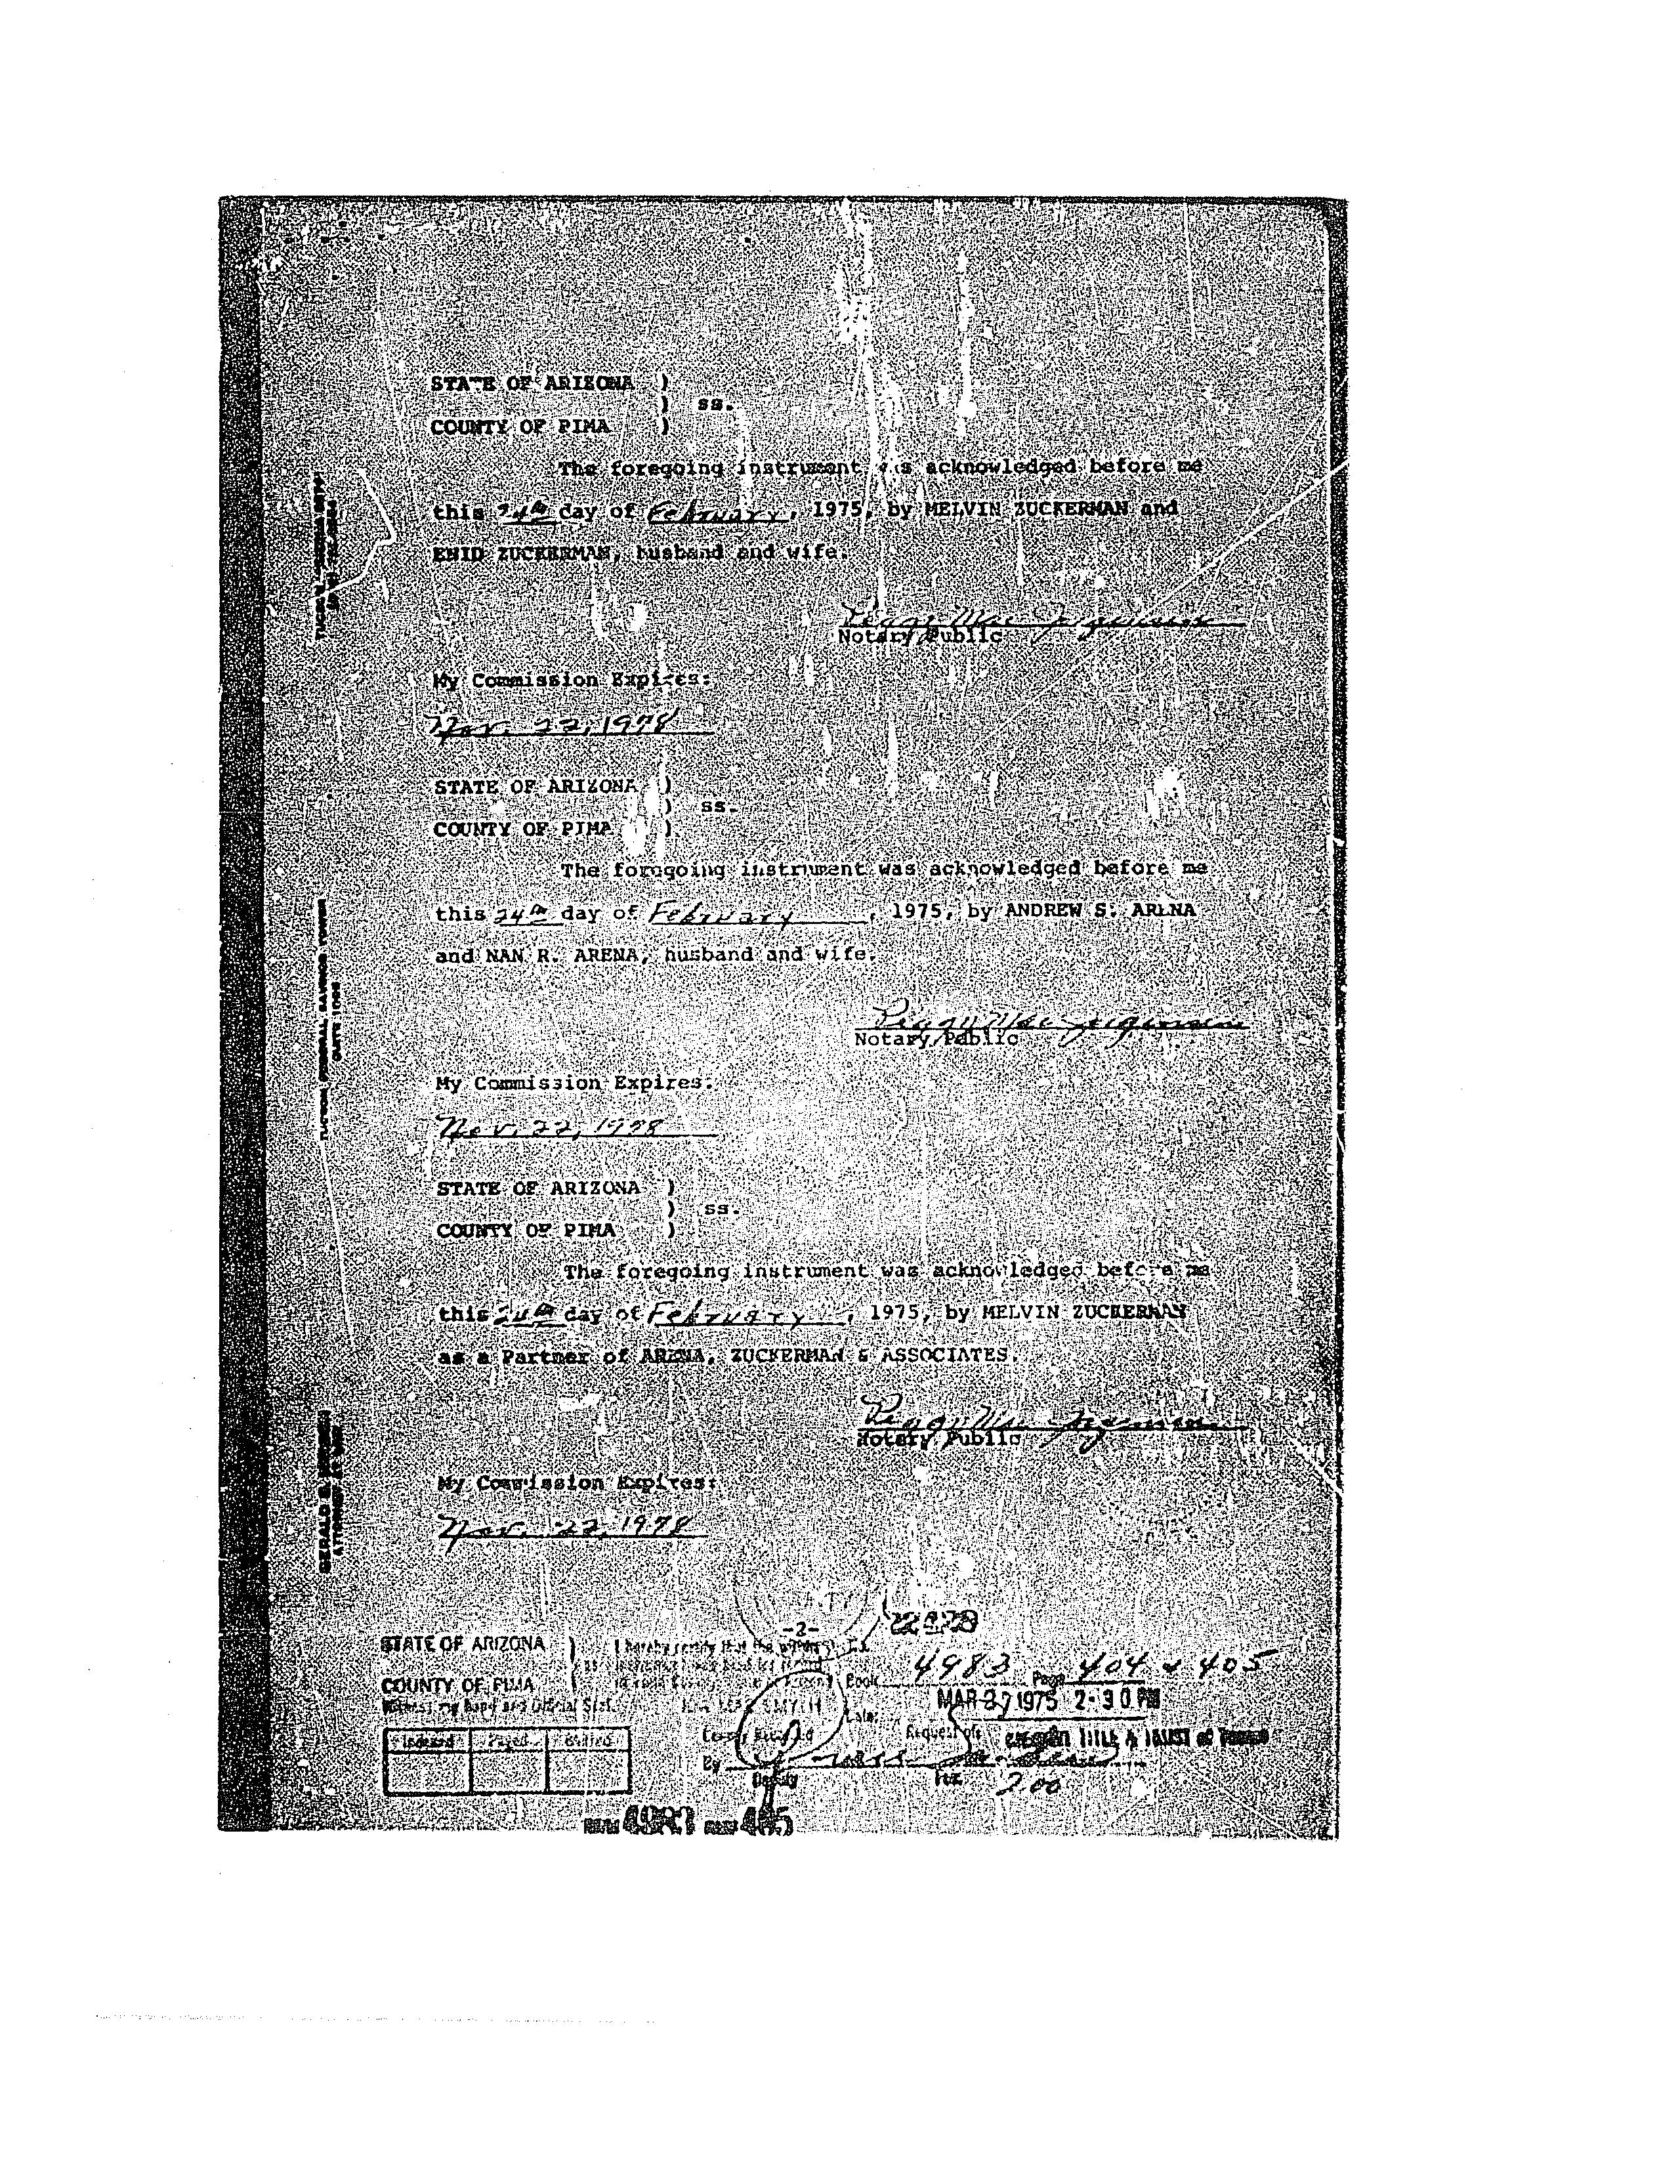 STATE OF ARIZONA )
) ss.
COUNTY OF PIMA )
The foregoing instrument was acknowledged before me
this 24th day of February, 1975, by MELVIN ZUCKERMAN and
ENID ZUCKERMAN, husband and wife.
Peggy Mae Jorgensen
Notary Public
My Commission Expires:
Nov. 22, 1978
STATE OF ARIZONA )
) ss.
COUNTY OF PIMA )
The foregoing instrument was acknowledged before me
this 24th day of February, 1975, by ANDREW S. ARENA
and NAN R. ARENA, husband and wife.
Peggy Mae Jorgensen
Notary Public
My Commission Expires:
Nov. 22, 1978
STATE OF ARIZONA )
) ss.
COUNTY OF PIMA )
The foregoing instrument was acknowledged before me
this 24th day of February, 1975, by MELVIN ZUCKERMAN
as a Partner of ARENA, ZUCKERMAN & ASSOCIATES.
Peggy Mae Jorgensen
Notary Public
My Commission Expires:
Nov. 22, 1978
-2-
STATE OF ARIZONA )
I hereby certify that the within
COUNTY OF PIMA
Book 4983 Page 404 & 405
Witness my hand and Official Seal.
Date: MAR 27 1975 2:30 PM
Indexed Paged Blotted
County Recorder
Request of: TITLE & TRUST of
By
Deputy
Fee 2.00
4983 405
TUCSON FEDERAL SAVINGS TOWER
SUITE
GERALD B.
ATTORNEY AT LAW